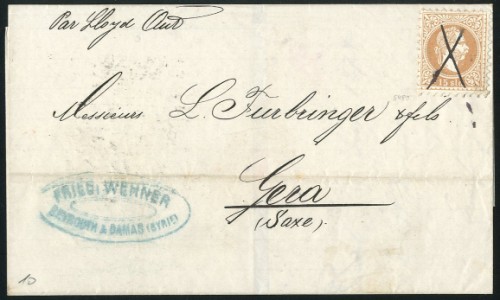 Par Lloyd Autr
Messieurs L. Furbringer & fils
Gera
(Saxe)
FRIED. WEHNER
BEYROUTH & DAMAS (SYRIE)
10